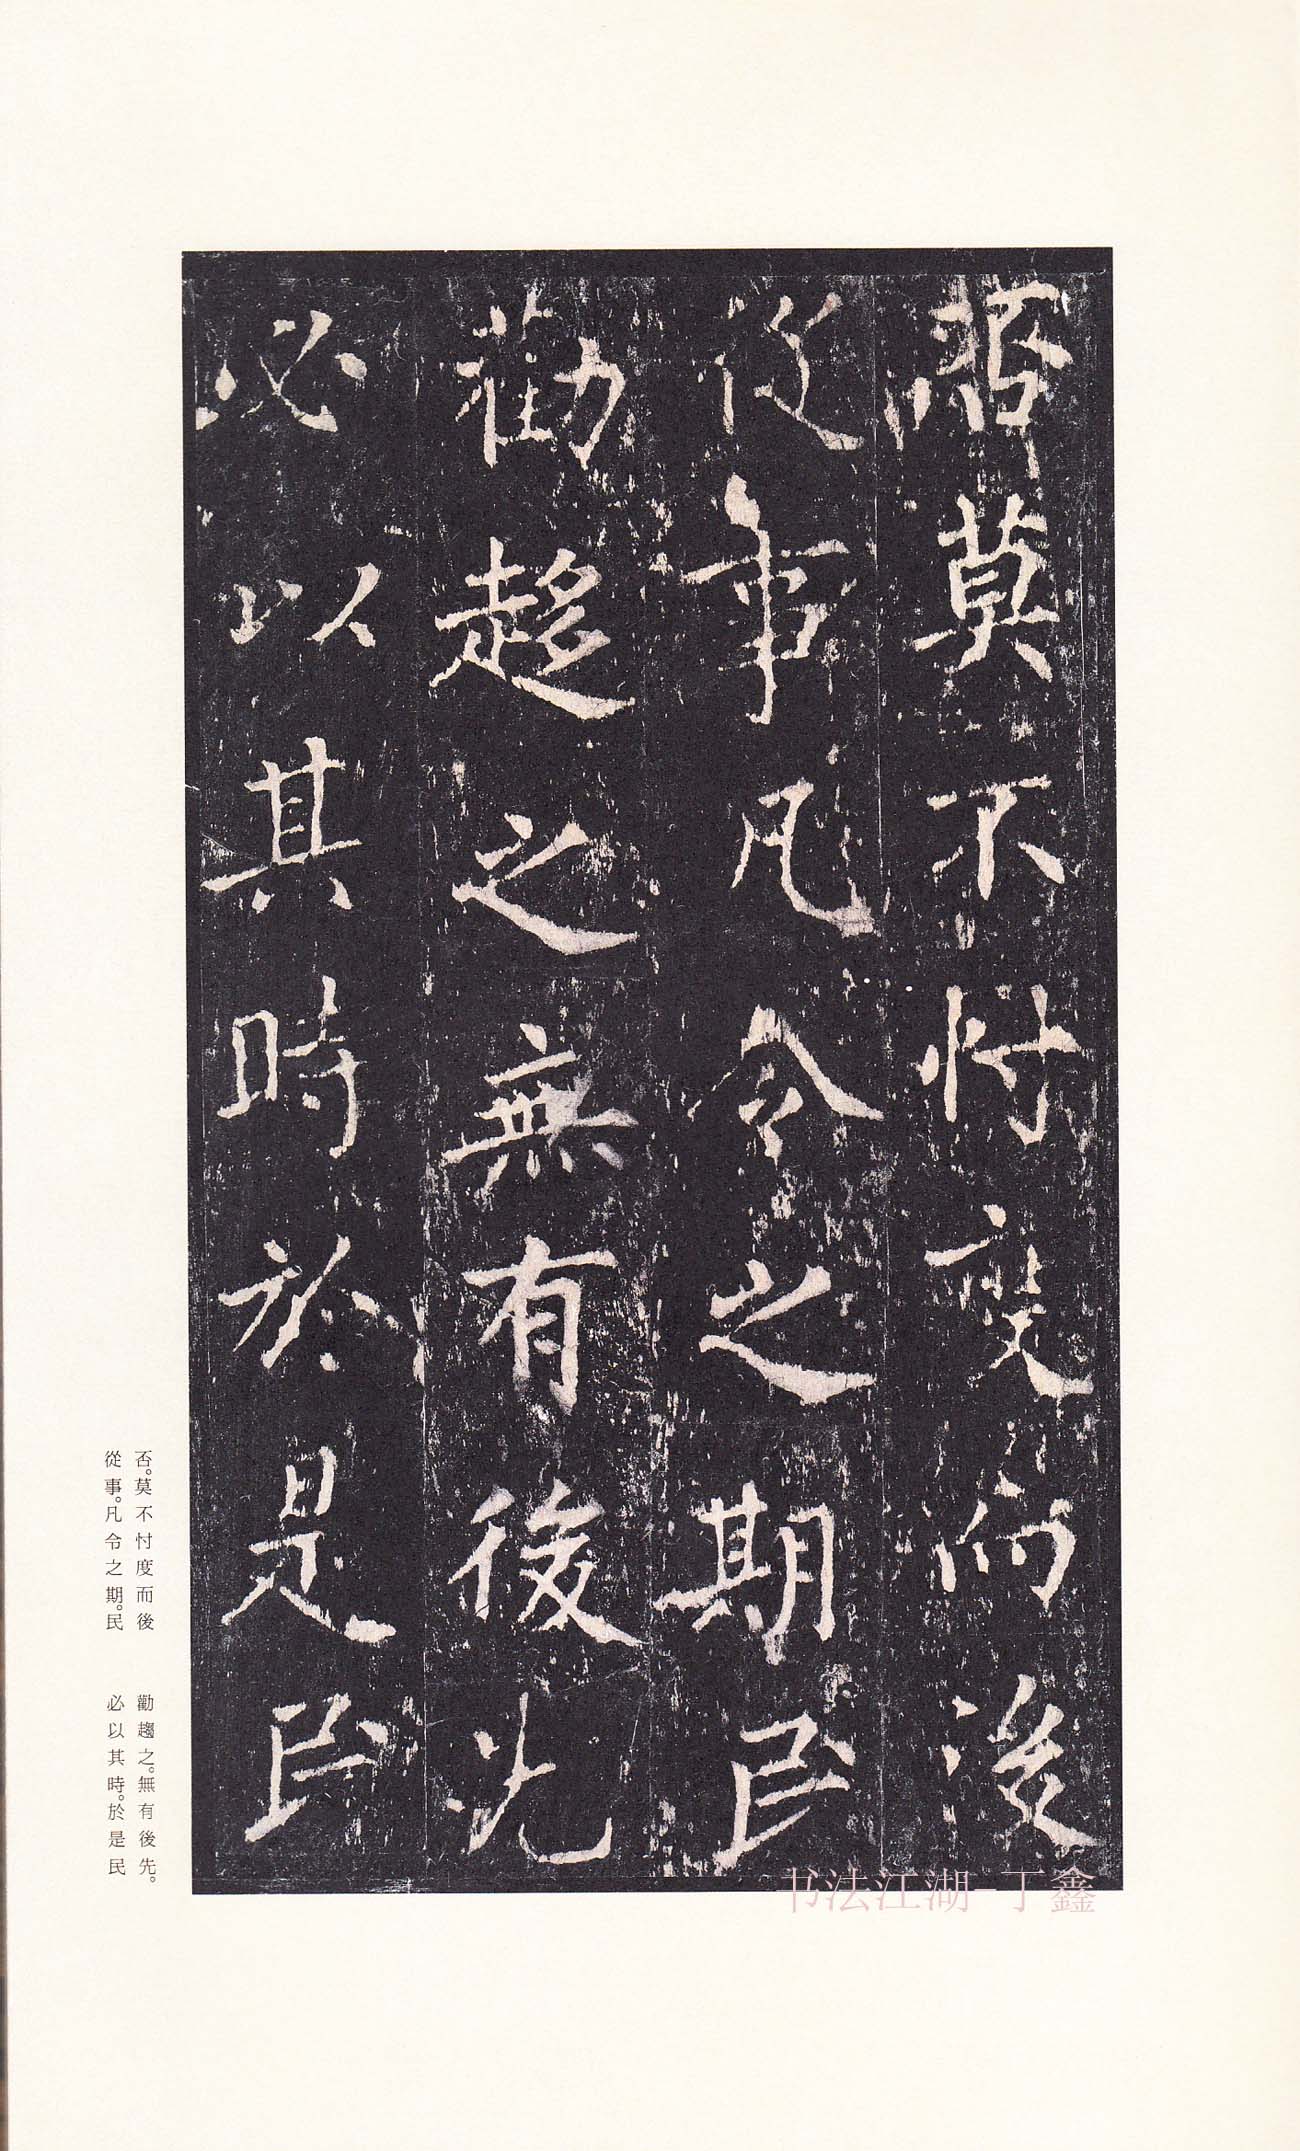 否莫不忖度而後
從事凡令之期民
勸趨之無有後先
必以其時於是民
否。莫不忖度而後
從事。凡令之期。民
勸趨之。無有後先。
必以其時。於是民
书法江湖-丁鑫